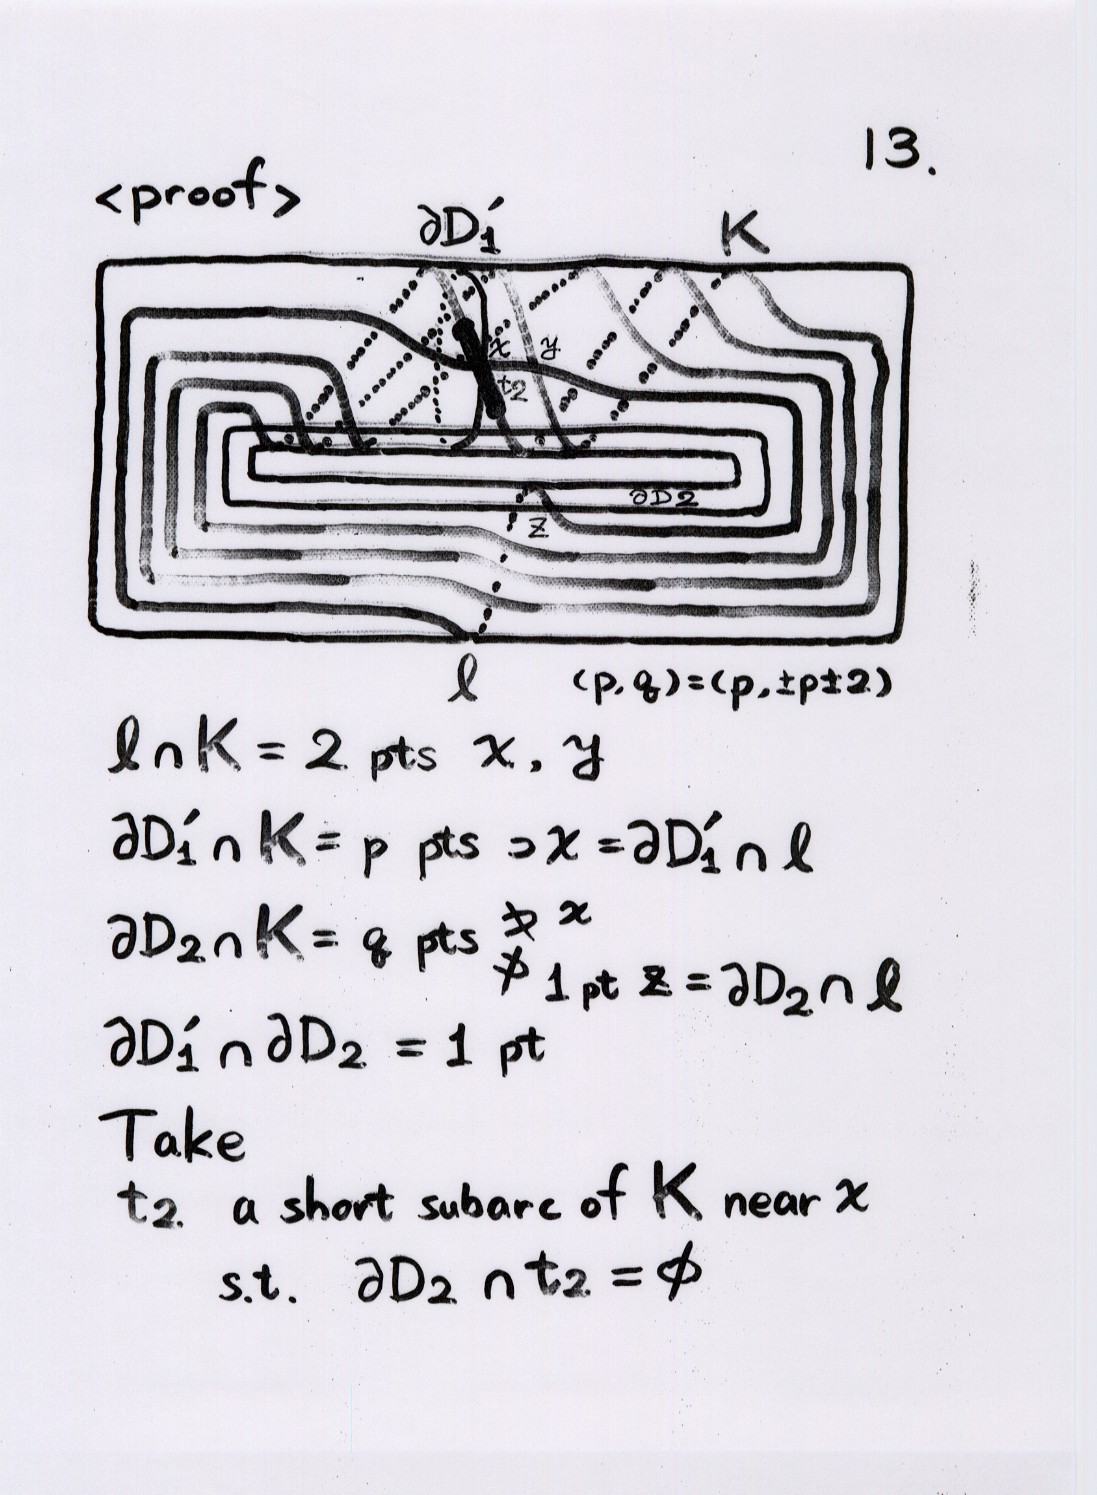 13.
<proof>
∂D₁′ K
x y
t₂
∂D₂
z
ℓ (p,q)=(p,±p±2)
ℓ∩K = 2 pts x, y
∂D₁′∩K = p pts ∋ x = ∂D₁′∩ℓ
∂D₂∩K = q pts ∌ x
∌ 1 pt z = ∂D₂∩ℓ
∂D₁′∩∂D₂ = 1 pt
Take
t₂ a short subarc of K near x
s.t. ∂D₂∩t₂ = ϕ